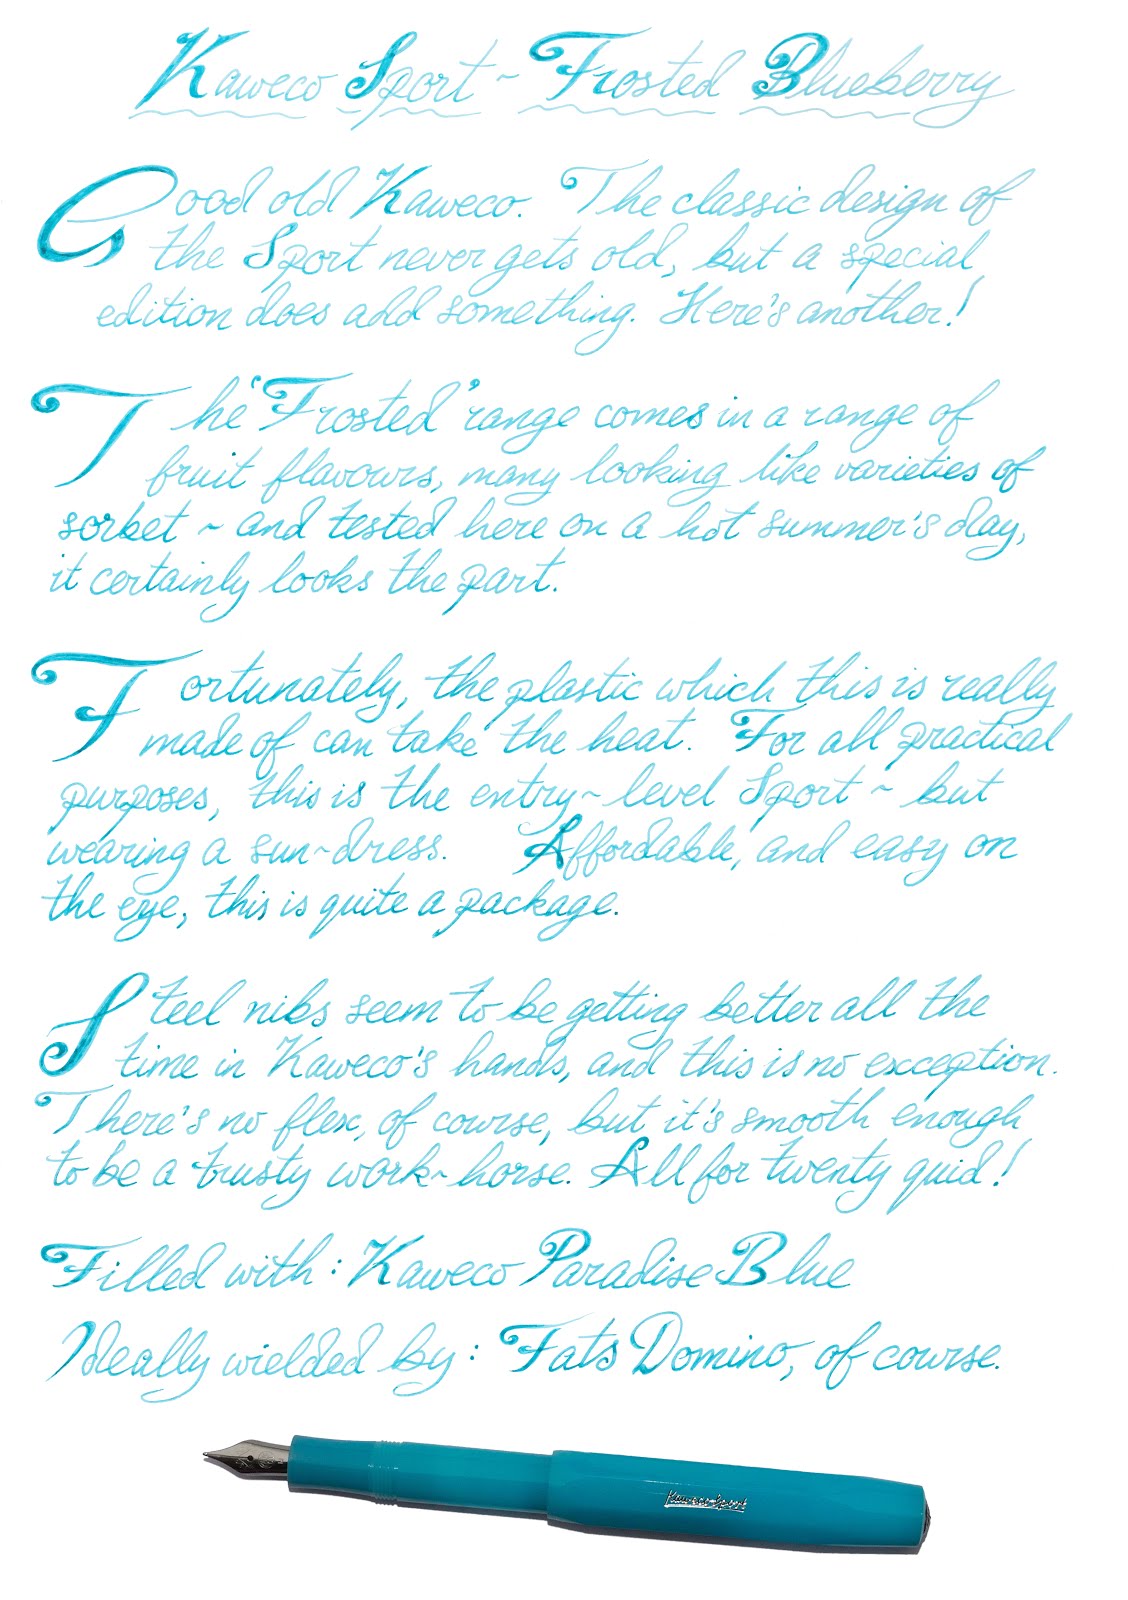 Kaweco Sport ~ Frosted Blueberry
Good old Kaweco. The classic design of
the Sport never gets old, but a special
edition does add something. Here's another!
The 'Frosted' range comes in a range of
fruit flavours, many looking like varieties of
sorbet ~ and tested here on a hot summer's day,
it certainly looks the part.
Fortunately, the plastic which this is really
made of can take the heat. For all practical
purposes, this is the entry~level Sport ~ but
wearing a sun~dress. Affordable, and easy on
the eye, this is quite a package.
Steel nibs seem to be getting better all the
time in Kaweco's hands, and this is no exception.
There's no flex, of course, but it's smooth enough
to be a trusty work~horse. All for twenty quid!
Filled with: Kaweco Paradise Blue
Ideally wielded by: Fats Domino, of course.
Kaweco Sport